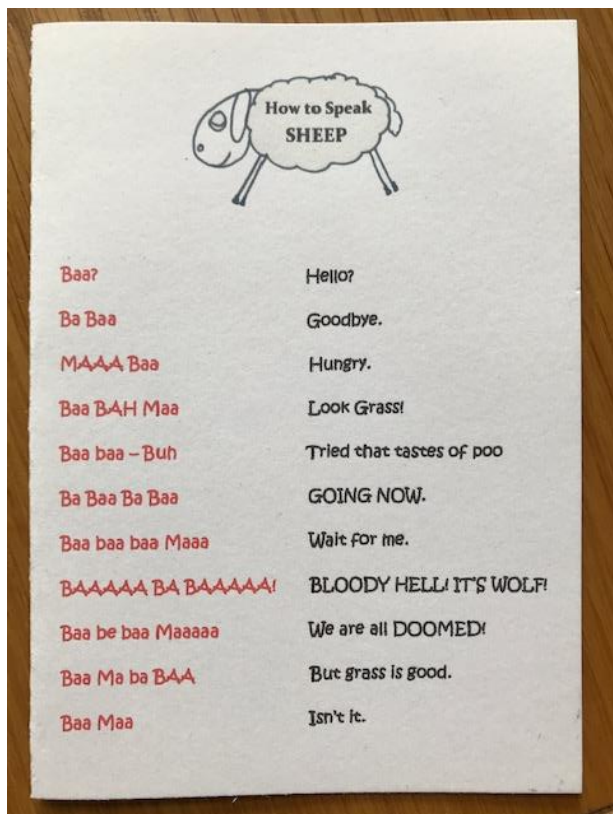 How to Speak
SHEEP
Baa? Hello?
Ba Baa Goodbye.
MAAA Baa Hungry.
Baa BAH Maa Look Grass!
Baa baa – Buh Tried that tastes of poo
Ba Baa Ba Baa GOING NOW.
Baa baa baa Maaa Wait for me.
BAAAAA BA BAAAAA! BLOODY HELL! IT'S WOLF!
Baa be baa Maaaaa We are all DOOMED!
Baa Ma ba BAA But grass is good.
Baa Maa Isn't it.